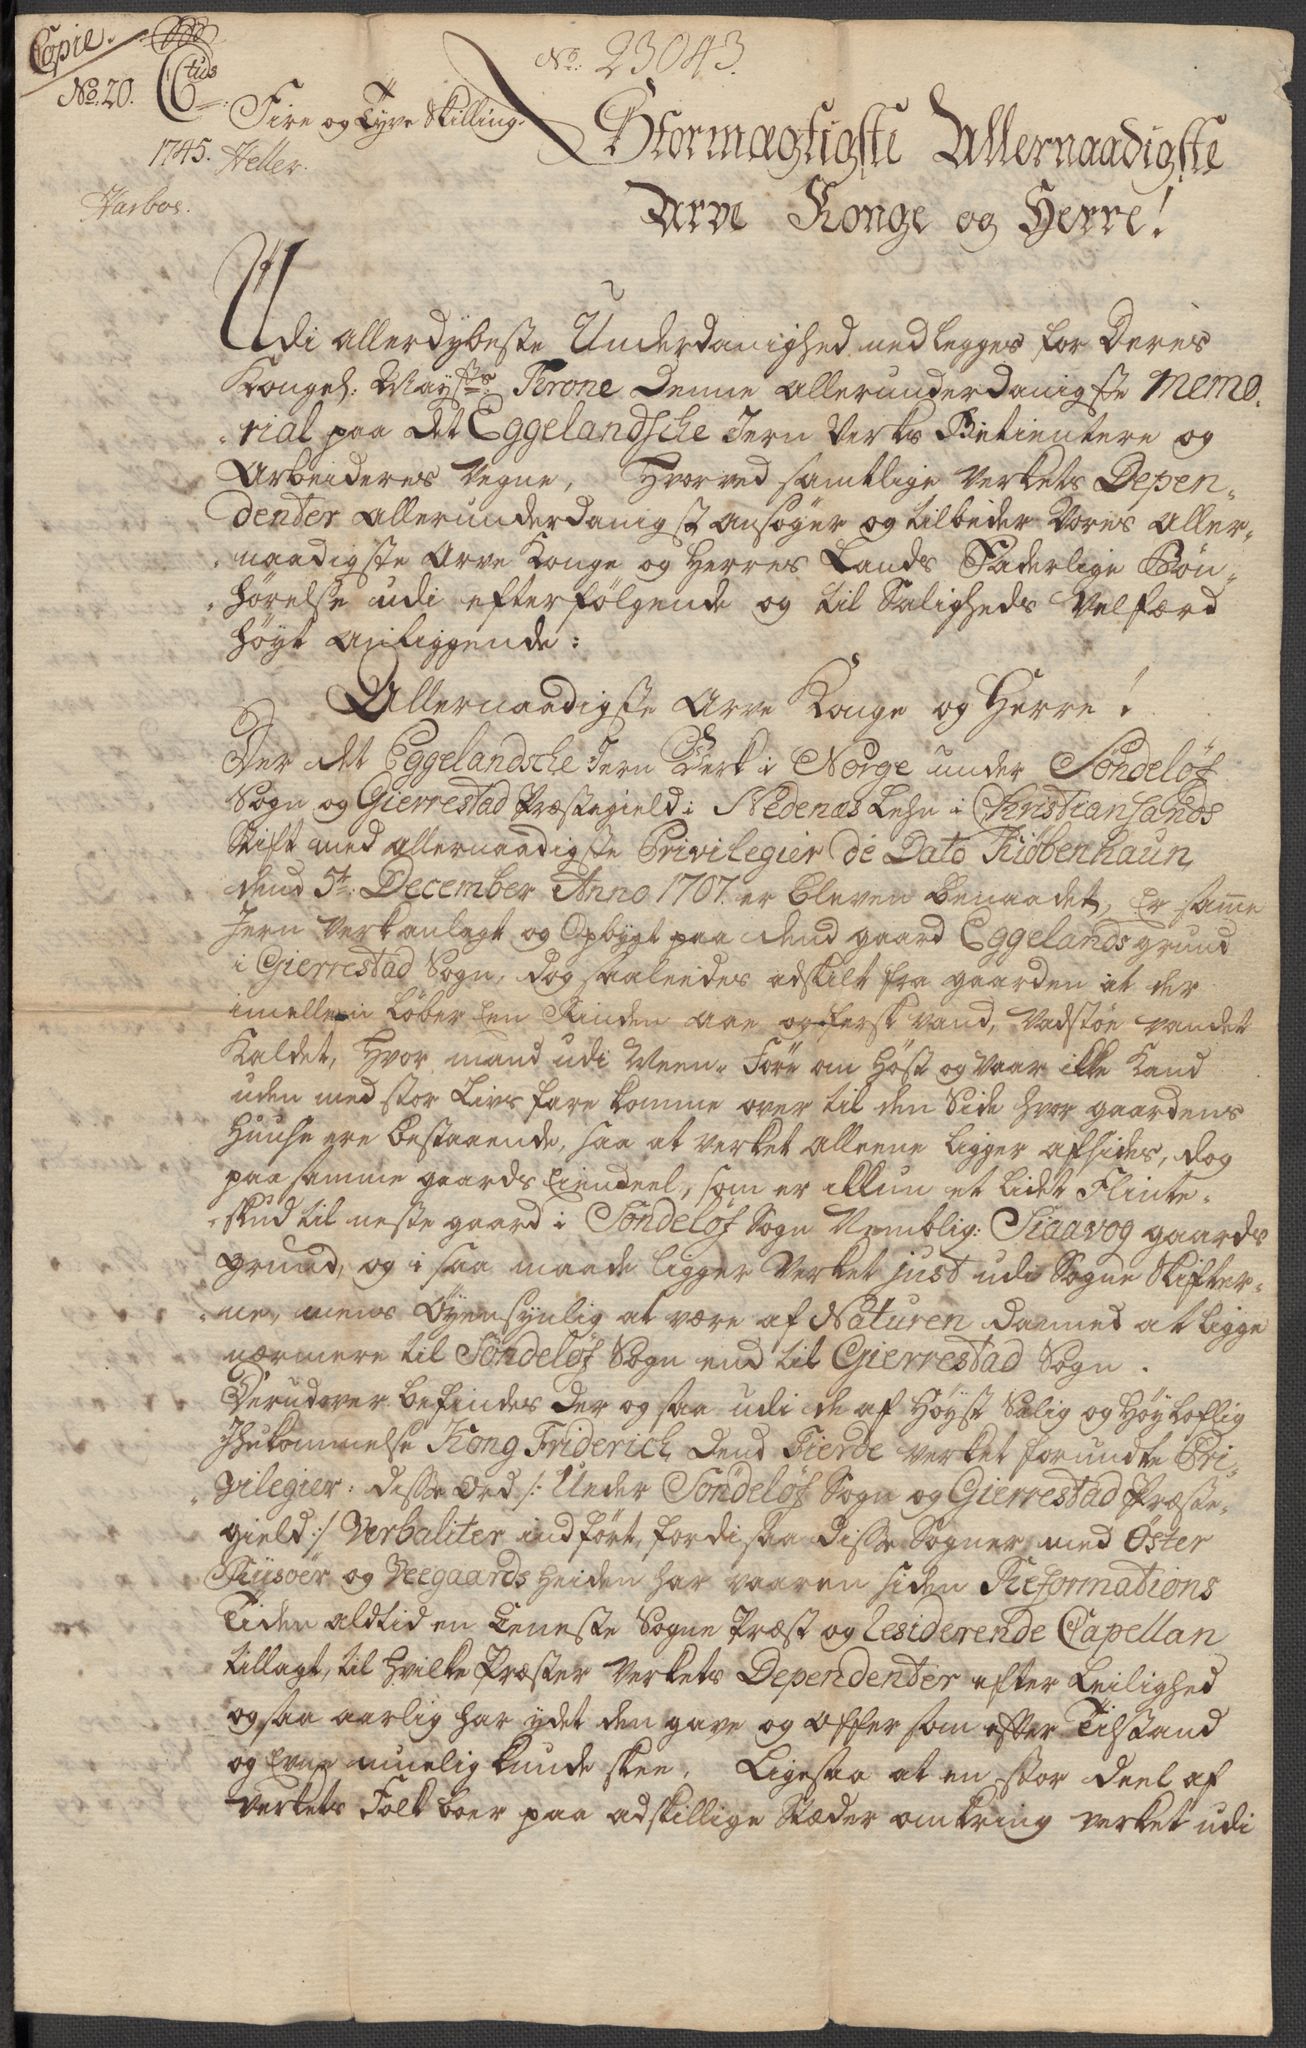 Copie.
No. 20. C6tus
No: 23043.
Fire og Tyve Skilling.
1745. Heller.
Harboe.
Stormægtigste Allernaadigste
Arve Konge og Herre!
Udi allerdybeste Underdanighed nedlegges for Deres
Kongel: Mayts: Trone denne allerunderdanigste memo-
-rial paa det Eggelandsche Jern Verks Betientere og
Arbeideres Vegne, hvorved samtlige Verkets Depen-
denter allerunderdanigst ansøger og tilbeder Vores aller-
-naadigste Arve Konge og Herres Lands Faderlige Bøn-
-hørelse udi efterfølgende og til Saligheds Velfærd
høyt anliggende:
Allernaadigste Arve Konge og Herre!
Der det Eggelandsche Jern Verk i Norge under Söndelöf
Sogn og Gierrestad Præstegield i Nedenæs Lehn i Christiansands
Stift med allernaadigste Privilegier de Dato Kiøbenhaun
dend 5te December Anno 1707. er bleven benaadet, Er samme
Jern Verk anlagt og Opbygt paa dend gaard Eggelands grund
i Gierrestad Sogn, dog saaleedes adskilt fra gaarden at der
imellem løber en Rinden aae og fersk vand, Vadstøe vandet
kaldet, hvor mand udi Meen-Føre om Høst og vaar ikke kand
uden med stor Livs fare komme over til den Side hvor gaardens
Huuse ere bestaaende, saa at verket alleene ligger afsides, dog
paa samme gaards Eiendeel, som er ikkun et lidet Flinte-
-skud til neste gaard i Söndelöf Sogn Nemblig: Siaavog gaards
grund, og i saa maade ligger Verket just udi Sogne Skifter-
-ne, mens Øyensynlig at være af Naturen dannet at ligge
nærmere til Söndelöf Sogn end til Gierrestad Sogn.
Derudover befindes der ogsaa udi de af Høyst Salig og Høyloflig
Ihukommelse Kong Friderich dend Fierde verket forundte Pri-
-vilegier: disse Ord /: Under Söndelöf Sogn og Gierrestad Præste-
gield :/ Verbaliter indført, fordi saa disse Sogner med Øster
Riisöer og Veegaards heiden har vaaren siden Reformations
Tiden altid en Eeneste Sogne Præst og Residerende Capellan
tillagt, til hvilke Præster Verkets Dependenter efter Leilighed
ogsaa aarlig har ydet den gave og offer som efter Tilstand
og Evne muelig kunde skee. Ligesaa at en stor deel af
Verkets Folk boer paa adskillige Stæder omkring verket udi